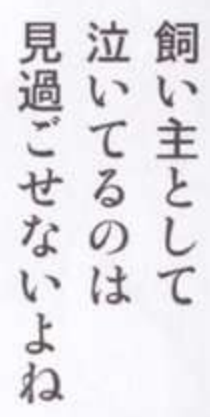 飼い主として
泣いてるのは
見過ごせないよね